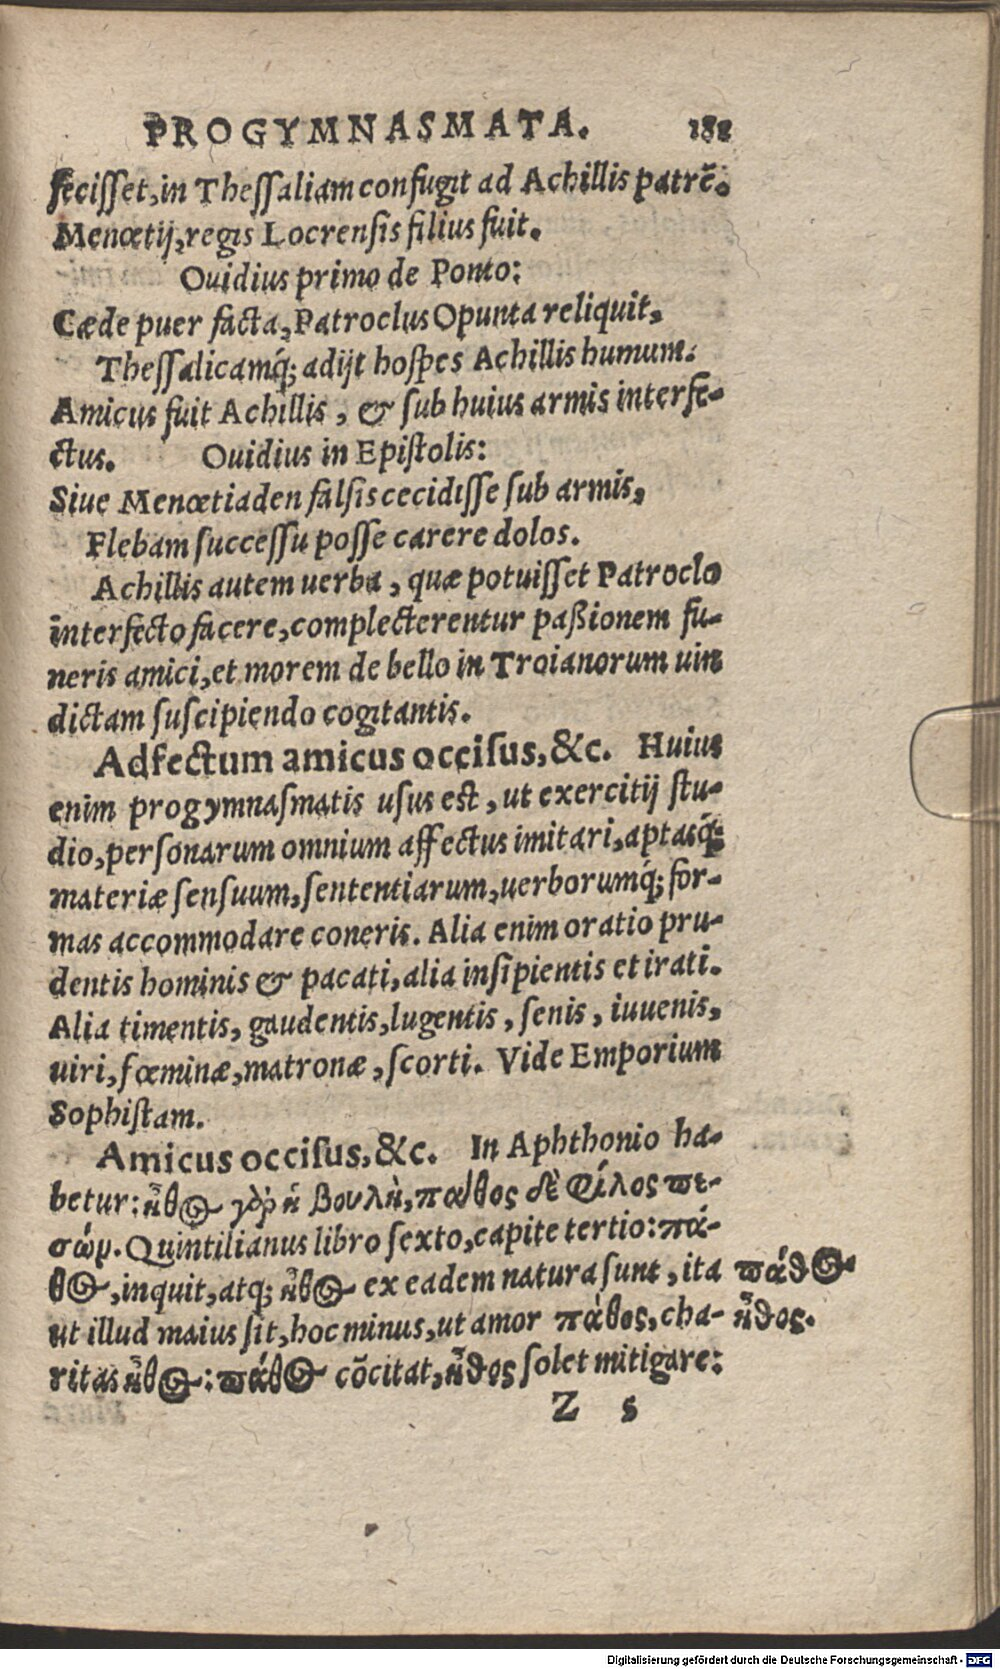 PROGYMNASMATA. 182
fecisset, in Thessaliam confugit ad Achillis patrẽ.
Menœtij, regis Locrensis filius fuit.
Ouidius primo de Ponto:
Cæde puer facta, Patroclus Opunta reliquit,
Thessalicamq́; adijt hospes Achillis humum.
Amicus fuit Achillis, & sub huius armis interfe-
ctus. Ouidius in Epistolis:
Siue Menœtiaden falsis cecidisse sub armis,
Flebam successu posse carere dolos.
Achillis autem uerba, quæ potuisset Patroclo
interfecto facere, complecterentur paßionem fu-
neris amici, et morem de bello in Troianorum uin
dictam suscipiendo cogitantis.
Adfectum amicus occisus, &c. Huius
enim progymnasmatis usus est, ut exercitij stu-
dio, personarum omnium affectus imitari, aptasq́;
materiæ sensuum, sententiarum, uerborumq́; for-
mas accommodare coneris. Alia enim oratio pru-
dentis hominis & pacati, alia insipientis et irati.
Alia timentis, gaudentis, lugentis, senis, iuuenis,
uiri, fœminæ, matronæ, scorti. Vide Emporium
Sophistam.
Amicus occisus, &c. In Aphthonio ha-
betur: ἦθος γὰρ ἡ βουλὴ, πάθος δὲ φίλος πε-
σών. Quintilianus libro sexto, capite tertio: πά-
θος, inquit, atq; ἦθος ex eadem natura sunt, ita
ut illud maius sit, hoc minus, ut amor πάθος, cha-
ritas ἦθος: πάθος cõcitat, ἦθος solet mitigare:
πάθος
ἦθος.
Z 5
Digitalisierung gefördert durch die Deutsche Forschungsgemeinschaft - DFG